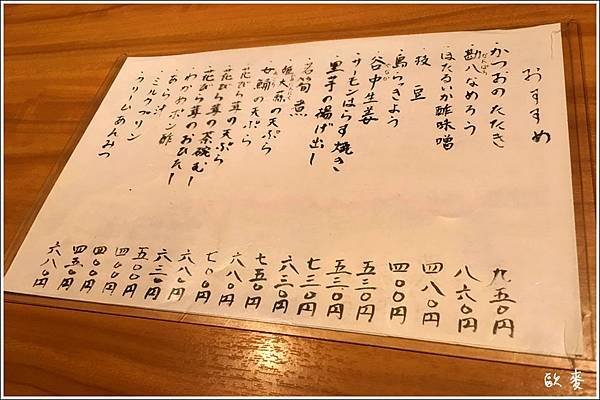 おすすめ
・かつおのたたき 九五〇円
・勘八なめろう 八六〇円
・ほたるいか酢味噌 四八〇円
・枝豆 四〇〇円
・島らっきょう 五三〇円
・谷中生姜 五三〇円
・サーモンはらす焼き 七三〇円
・里芋の揚げ出し 六三〇円
・若筍煮 七五〇円
・姫大蒜の天ぷら 六八〇円
・女鯒の天ぷら 七〇〇円
・花びら茸の天ぷら 六八〇円
・花びら茸の茶碗むし 六三〇円
・花びら茸のおひたし 五〇〇円
・わかめポン酢 四〇〇円
・あら汁 四〇〇円
・ミルクプリン 四五〇円
・クリームあんみつ 六八〇円
歐麥